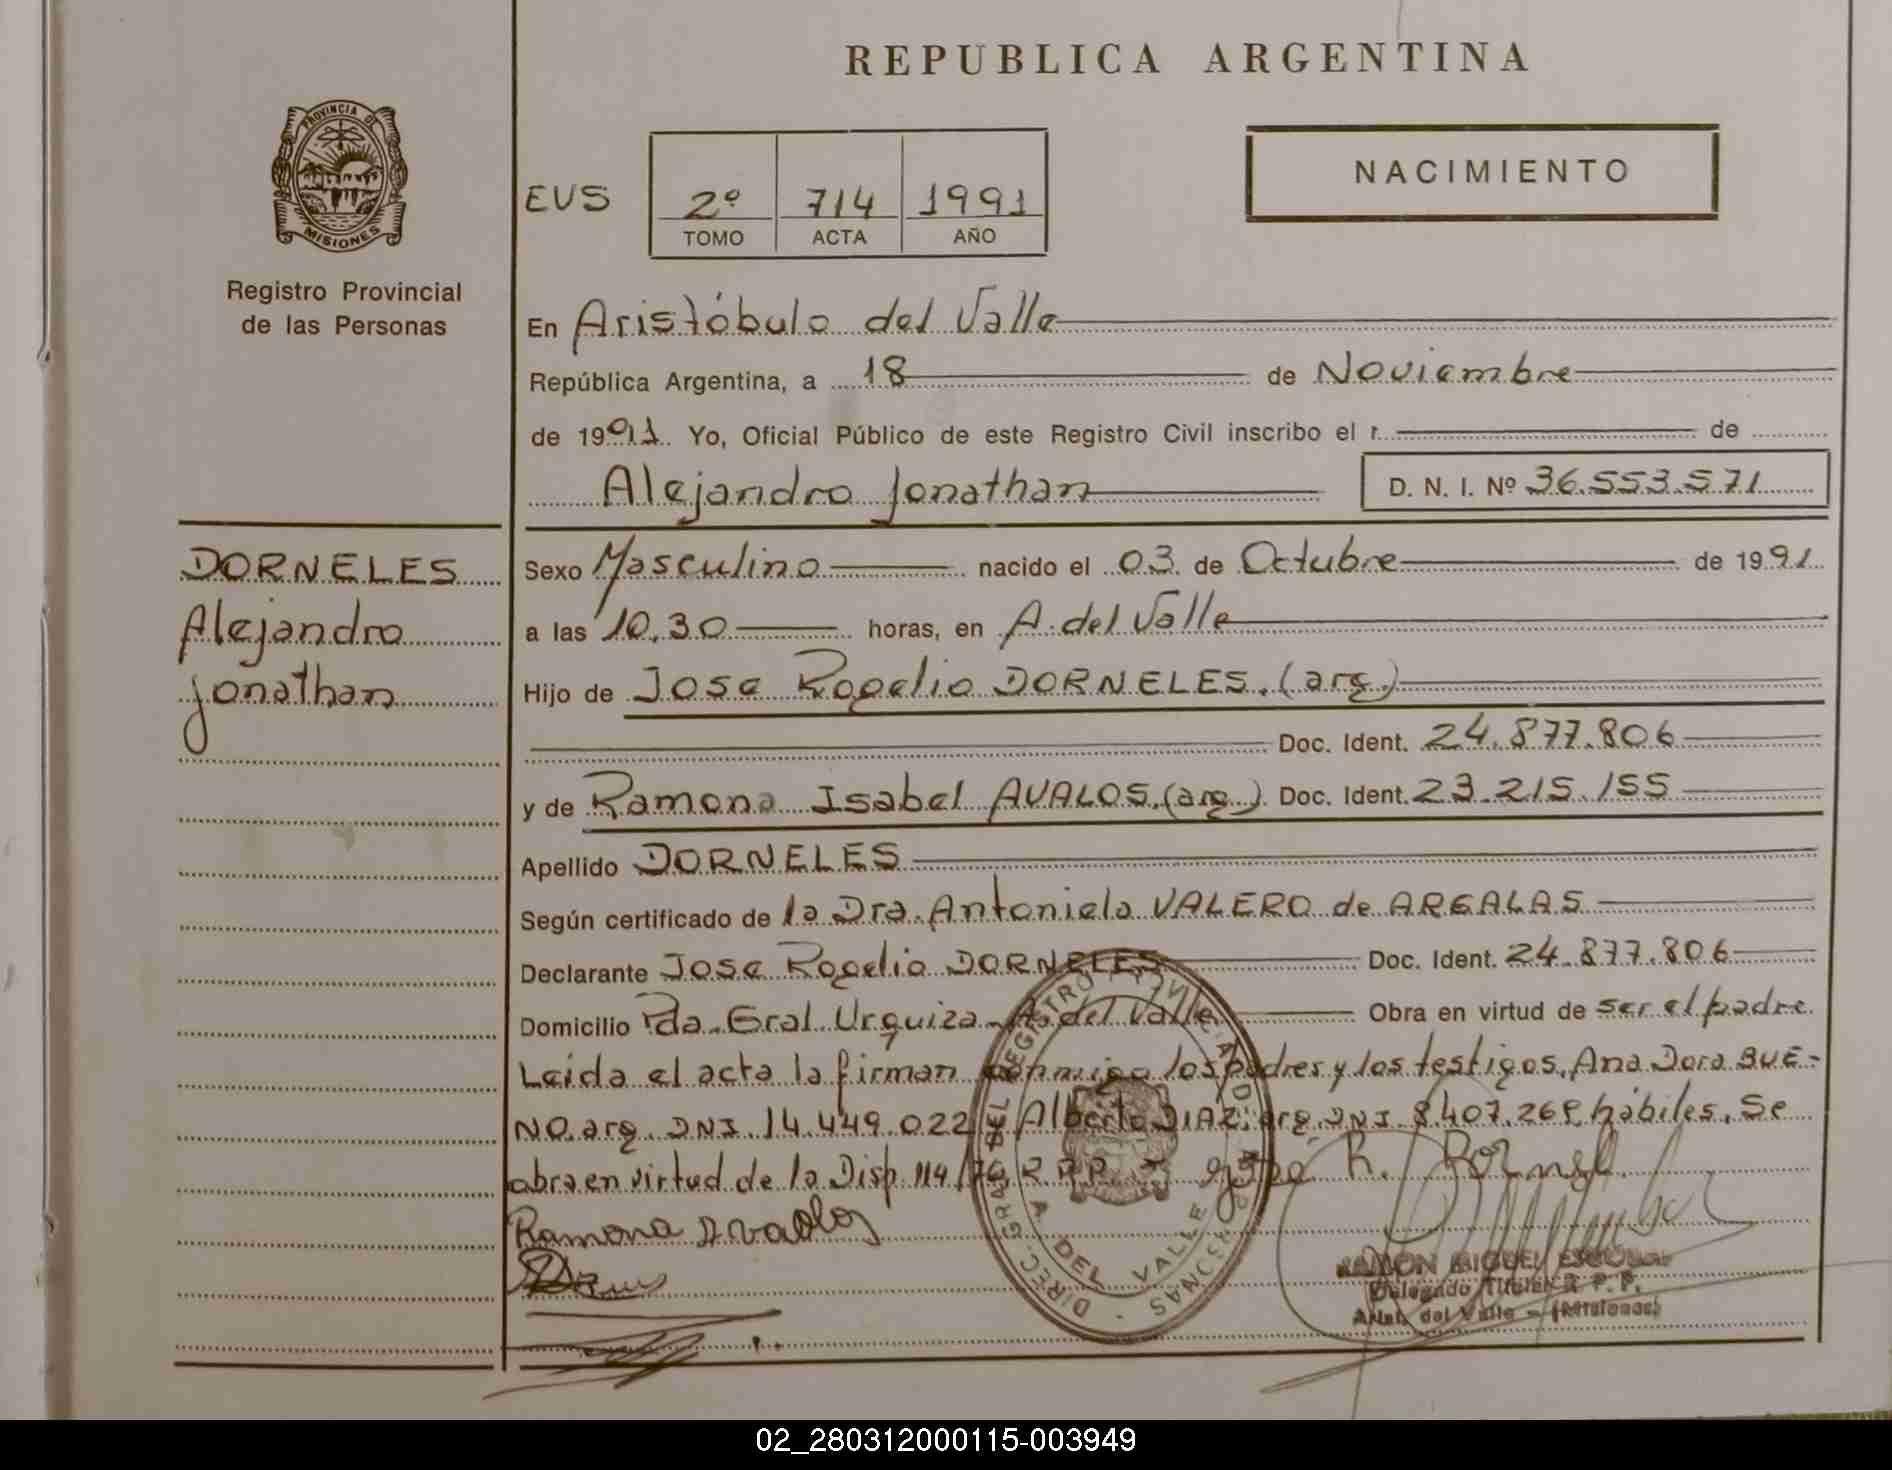 REPUBLICA ARGENTINA
PROVINCIA DE
MISIONES
Registro Provincial
de las Personas
EVS
2º 714 1991
TOMO ACTA AÑO
NACIMIENTO
En Aristóbulo del Valle
República Argentina, a 18 de Noviembre
de 1991. Yo, Oficial Público de este Registro Civil inscribo el de
Alejandro Jonathan D. N. I. Nº 36.553.571
DORNELES
Alejandro
Jonathan
Sexo Masculino nacido el 03 de Octubre de 1991
a las 10,30 horas, en A. del Valle
Hijo de Jose Rogelio DORNELES. (arg.)
Doc. Ident. 24.877.806
y de Ramona Isabel AVALOS. (arg.) Doc. Ident. 23.215.155
Apellido DORNELES
Según certificado de la Dra. Antoniela VALERO de ARGALAS
Declarante Jose Rogelio DORNELES Doc. Ident. 24.877.806
Domicilio Pda. Gral. Urquiza - A. del Valle Obra en virtud de ser el padre.
Leida el acta la firman conmigo los padres y los testigos, Ana Dora BUE-
NO. arg. DNI. 14.449.022 Alberto DIAZ. arg. DNI. 8.407.269 hábiles. Se
obra en virtud de la Disp. 114/76 R.P.P. José R. Dornel
Ramona Avalos
DIREC. GRAL. DEL REGISTRO PROVINCIAL DE PERSONAS
A. DEL VALLE
RAMON MIGUEL ESCOBAR
Delegado Titular R. P. P.
Arist. del Valle - (Misiones)
02_280312000115-003949